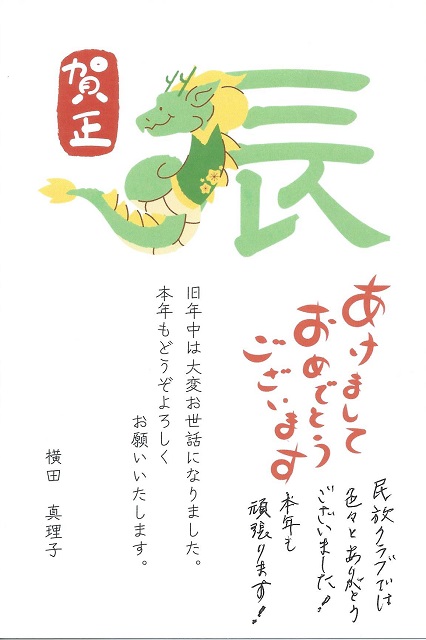 賀正
辰
あけまして
おめでとう
ございます
旧年中は大変お世話になりました。
本年もどうぞよろしく
お願いいたします。
横田　真理子
民放クラブでは
色々とありがとう
ございました!
本年も
頑張ります!